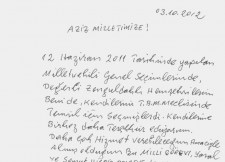 03.10.2012
AZİZ MİLLETİMİZE!
12 Haziran 2011 Tarihinde yapılan
Milletvekili Genel Seçimlerinde,
Değerli Zonguldaklı Hemşehrilerim
Beni de, Kendilerini T.B.M.Meclisinde
Temsil için Seçmişlerdi. Kendilerine
Bir kez daha Teşekkür ediyorum.
Daha çok Hizmet verebileceğim
almış olduğum Bu Milli görevi,